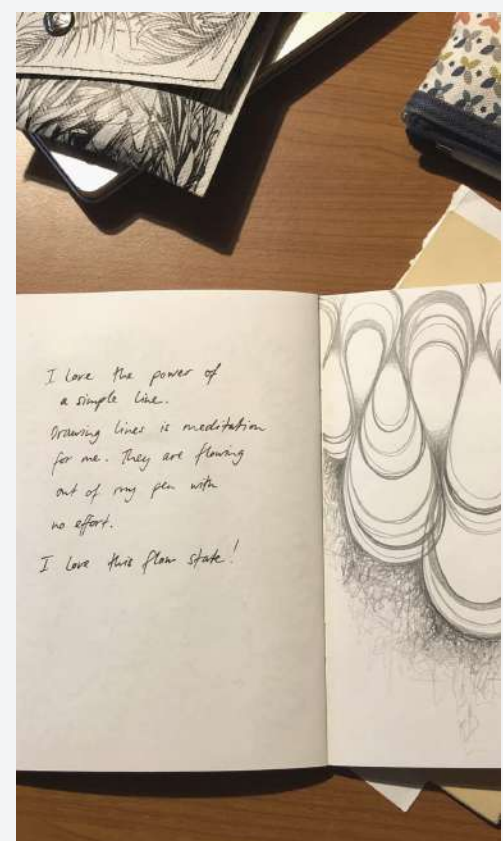 I love the power of
a simple line.
Drawing lines is meditation
for me. They are flowing
out of my pen with
no effort.
I love this flow state!